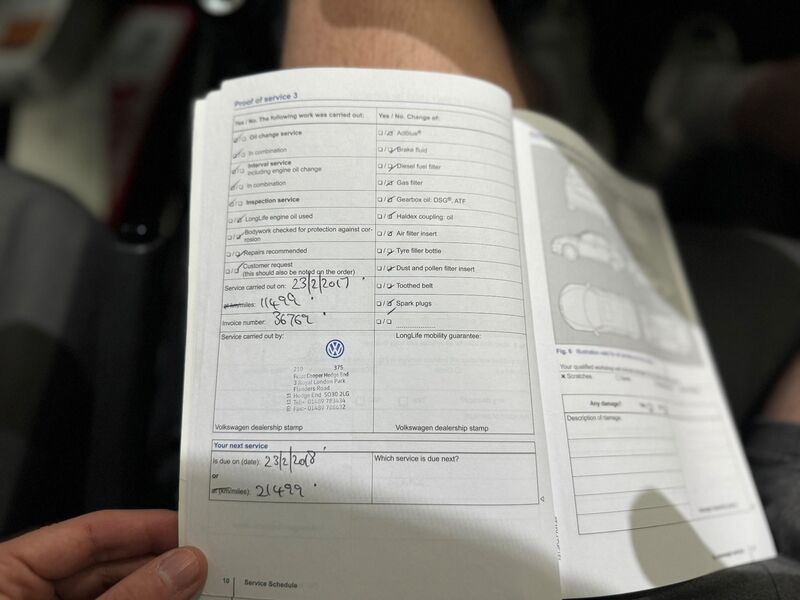 Proof of service 3
Yes / No. The following work was carried out:
Oil change service
In combination
Interval service
including engine oil change
In combination
Inspection service
LongLife engine oil used
Bodywork checked for protection against cor-
rosion
Repairs recommended
Customer request
(this should also be noted on the order)
Service carried out on: 23/2/2017
at km/miles: 11499
Invoice number: 36769
Yes / No. Change of:
AdBlue®
Brake fluid
Diesel fuel filter
Gas filter
Gearbox oil: DSG®, ATF
Haldex coupling: oil
Air filter insert
Tyre filler bottle
Dust and pollen filter insert
Toothed belt
Spark plugs
Service carried out by:
210 375
Cooper Hedge End
3 Royal London Park
Flanders Road
Hedge End SO30 2LG
Tel:- 01489 783434
Volkswagen dealership stamp
LongLife mobility guarantee:
Volkswagen dealership stamp
Your next service
is due on (date): 23/2/2018
or
at (km/miles): 21499
Which service is due next?
10 Service Schedule
Your qualified workshop
Scratches
Any damage?
Description of damage: